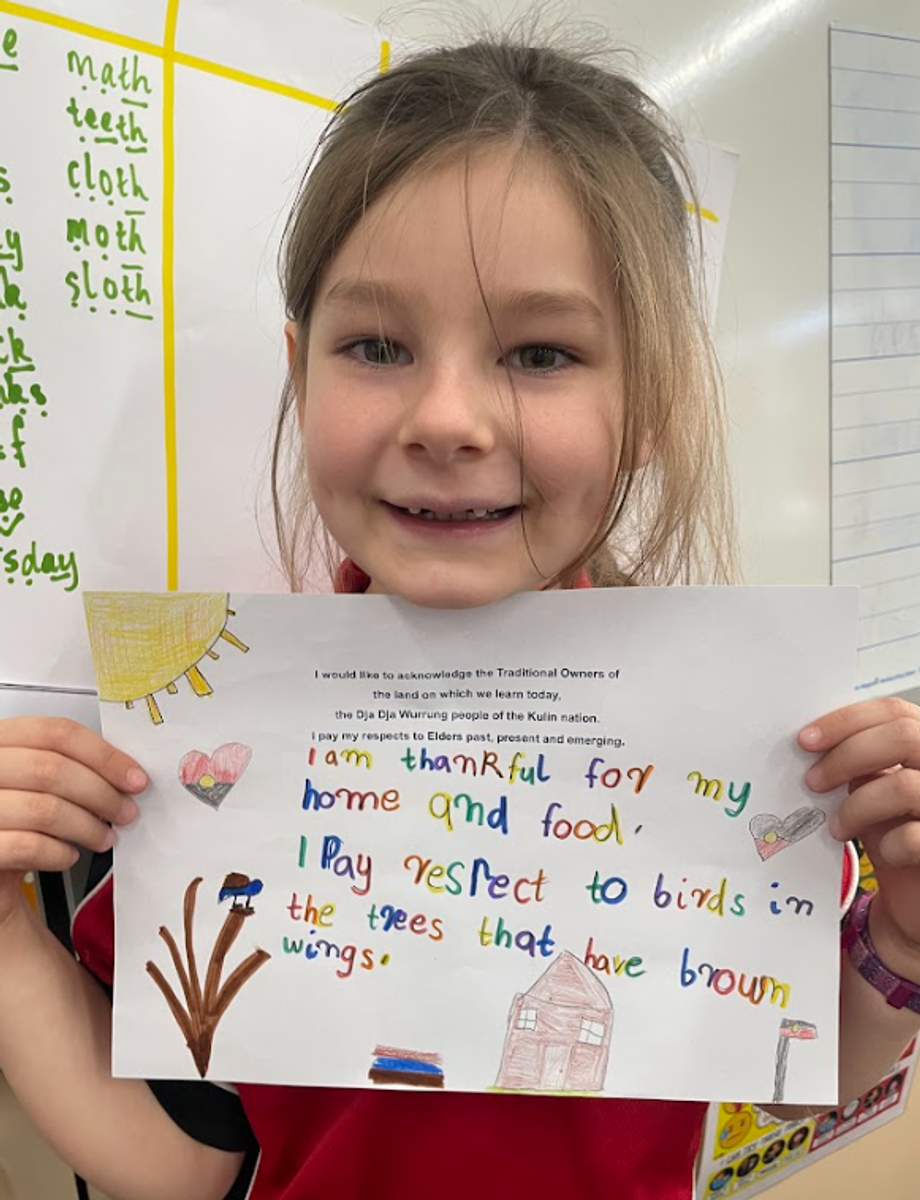 math
teeth
cloth
moth
sloth
sday
I would like to acknowledge the Traditional Owners of
the land on which we learn today,
the Dja Dja Wurrung people of the Kulin nation.
I pay my respects to Elders past, present and emerging.
I am thankful for my
home and food.
I Pay resPect to birds in
the trees that have brown
wings.